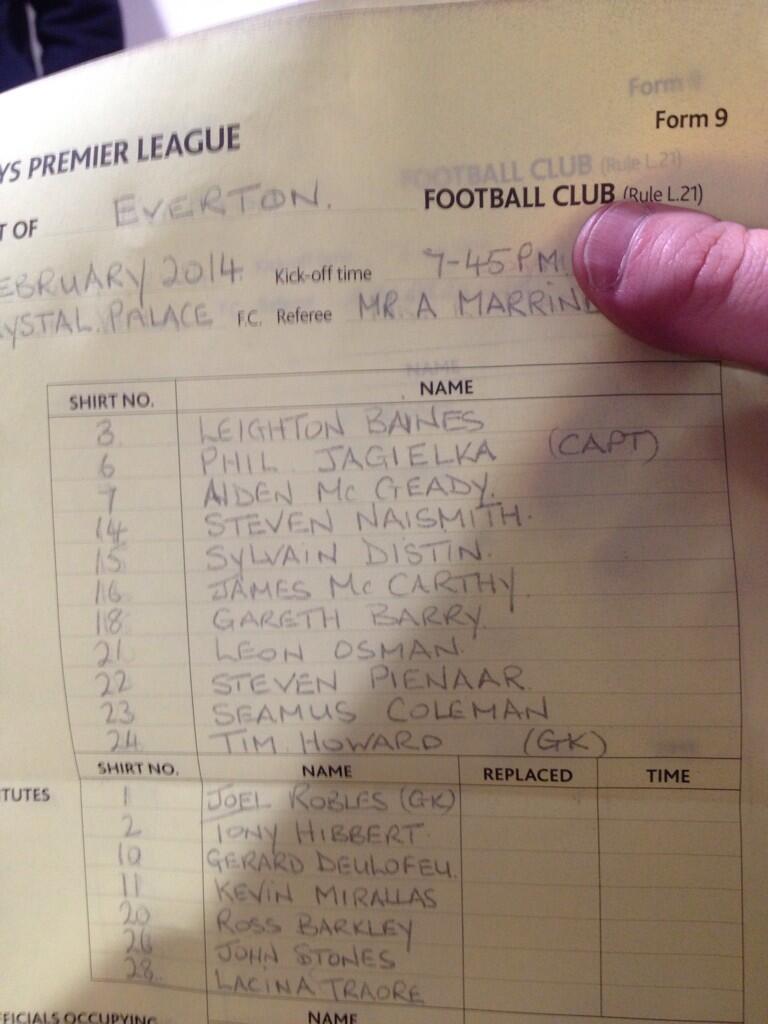 Form 9
YS PREMIER LEAGUE
T OF EVERTON. FOOTBALL CLUB (Rule L.21)
EBRUARY 2014 Kick-off time 7-45PM
YSTAL PALACE F.C. Referee MR A MARRINE
SHIRT NO. NAME
3 LEIGHTON BAINES
6 PHIL JAGIELKA (CAPT)
7 AIDEN Mc GEADY.
14 STEVEN NAISMITH.
15 SYLVAIN DISTIN.
16 JAMES Mc CARTHY.
18 GARETH BARRY.
21 LEON OSMAN.
22 STEVEN PIENAAR
23 SEAMUS COLEMAN
24 TIM HOWARD (GK)
SHIRT NO. NAME REPLACED TIME
TUTES 1 JOEL ROBLES (GK)
2 TONY HIBBERT.
10 GERARD DEULOFEU.
11 KEVIN MIRALLAS
20 ROSS BARKLEY
26 JOHN STONES
28 LACINA TRAORE
FFICIALS OCCUPYING NAME